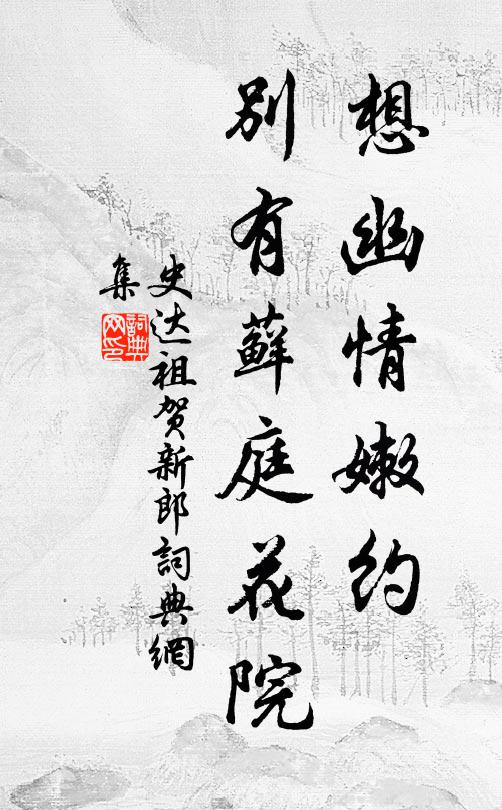 想幽情嫩约
别有藓庭花院
史达祖贺新郎詞典網
集
詞典
网印